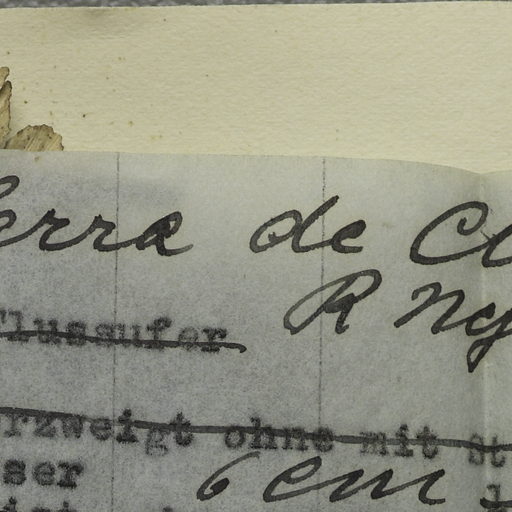 erra de
R
Flussufer
rzweigt ohne mit St
ser 6 cm